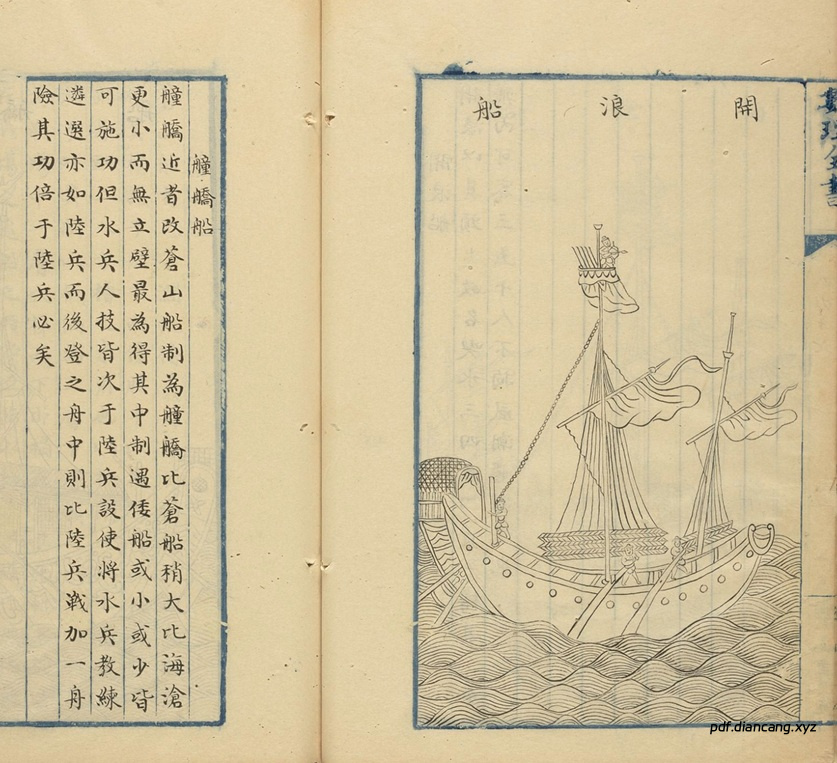 開浪船
艟䑿船
艟䑿近者改蒼山船制為艟䑿比蒼船稍大比海滄
更小而無立壁最為得其中制遇倭船或小或少皆
可施功但水兵人技皆次于陸兵設使將水兵教練
遴選亦如陸兵而後登之舟中則比陸兵戰加一舟
險其功倍于陸兵必矣
pdf.diancang.xyz